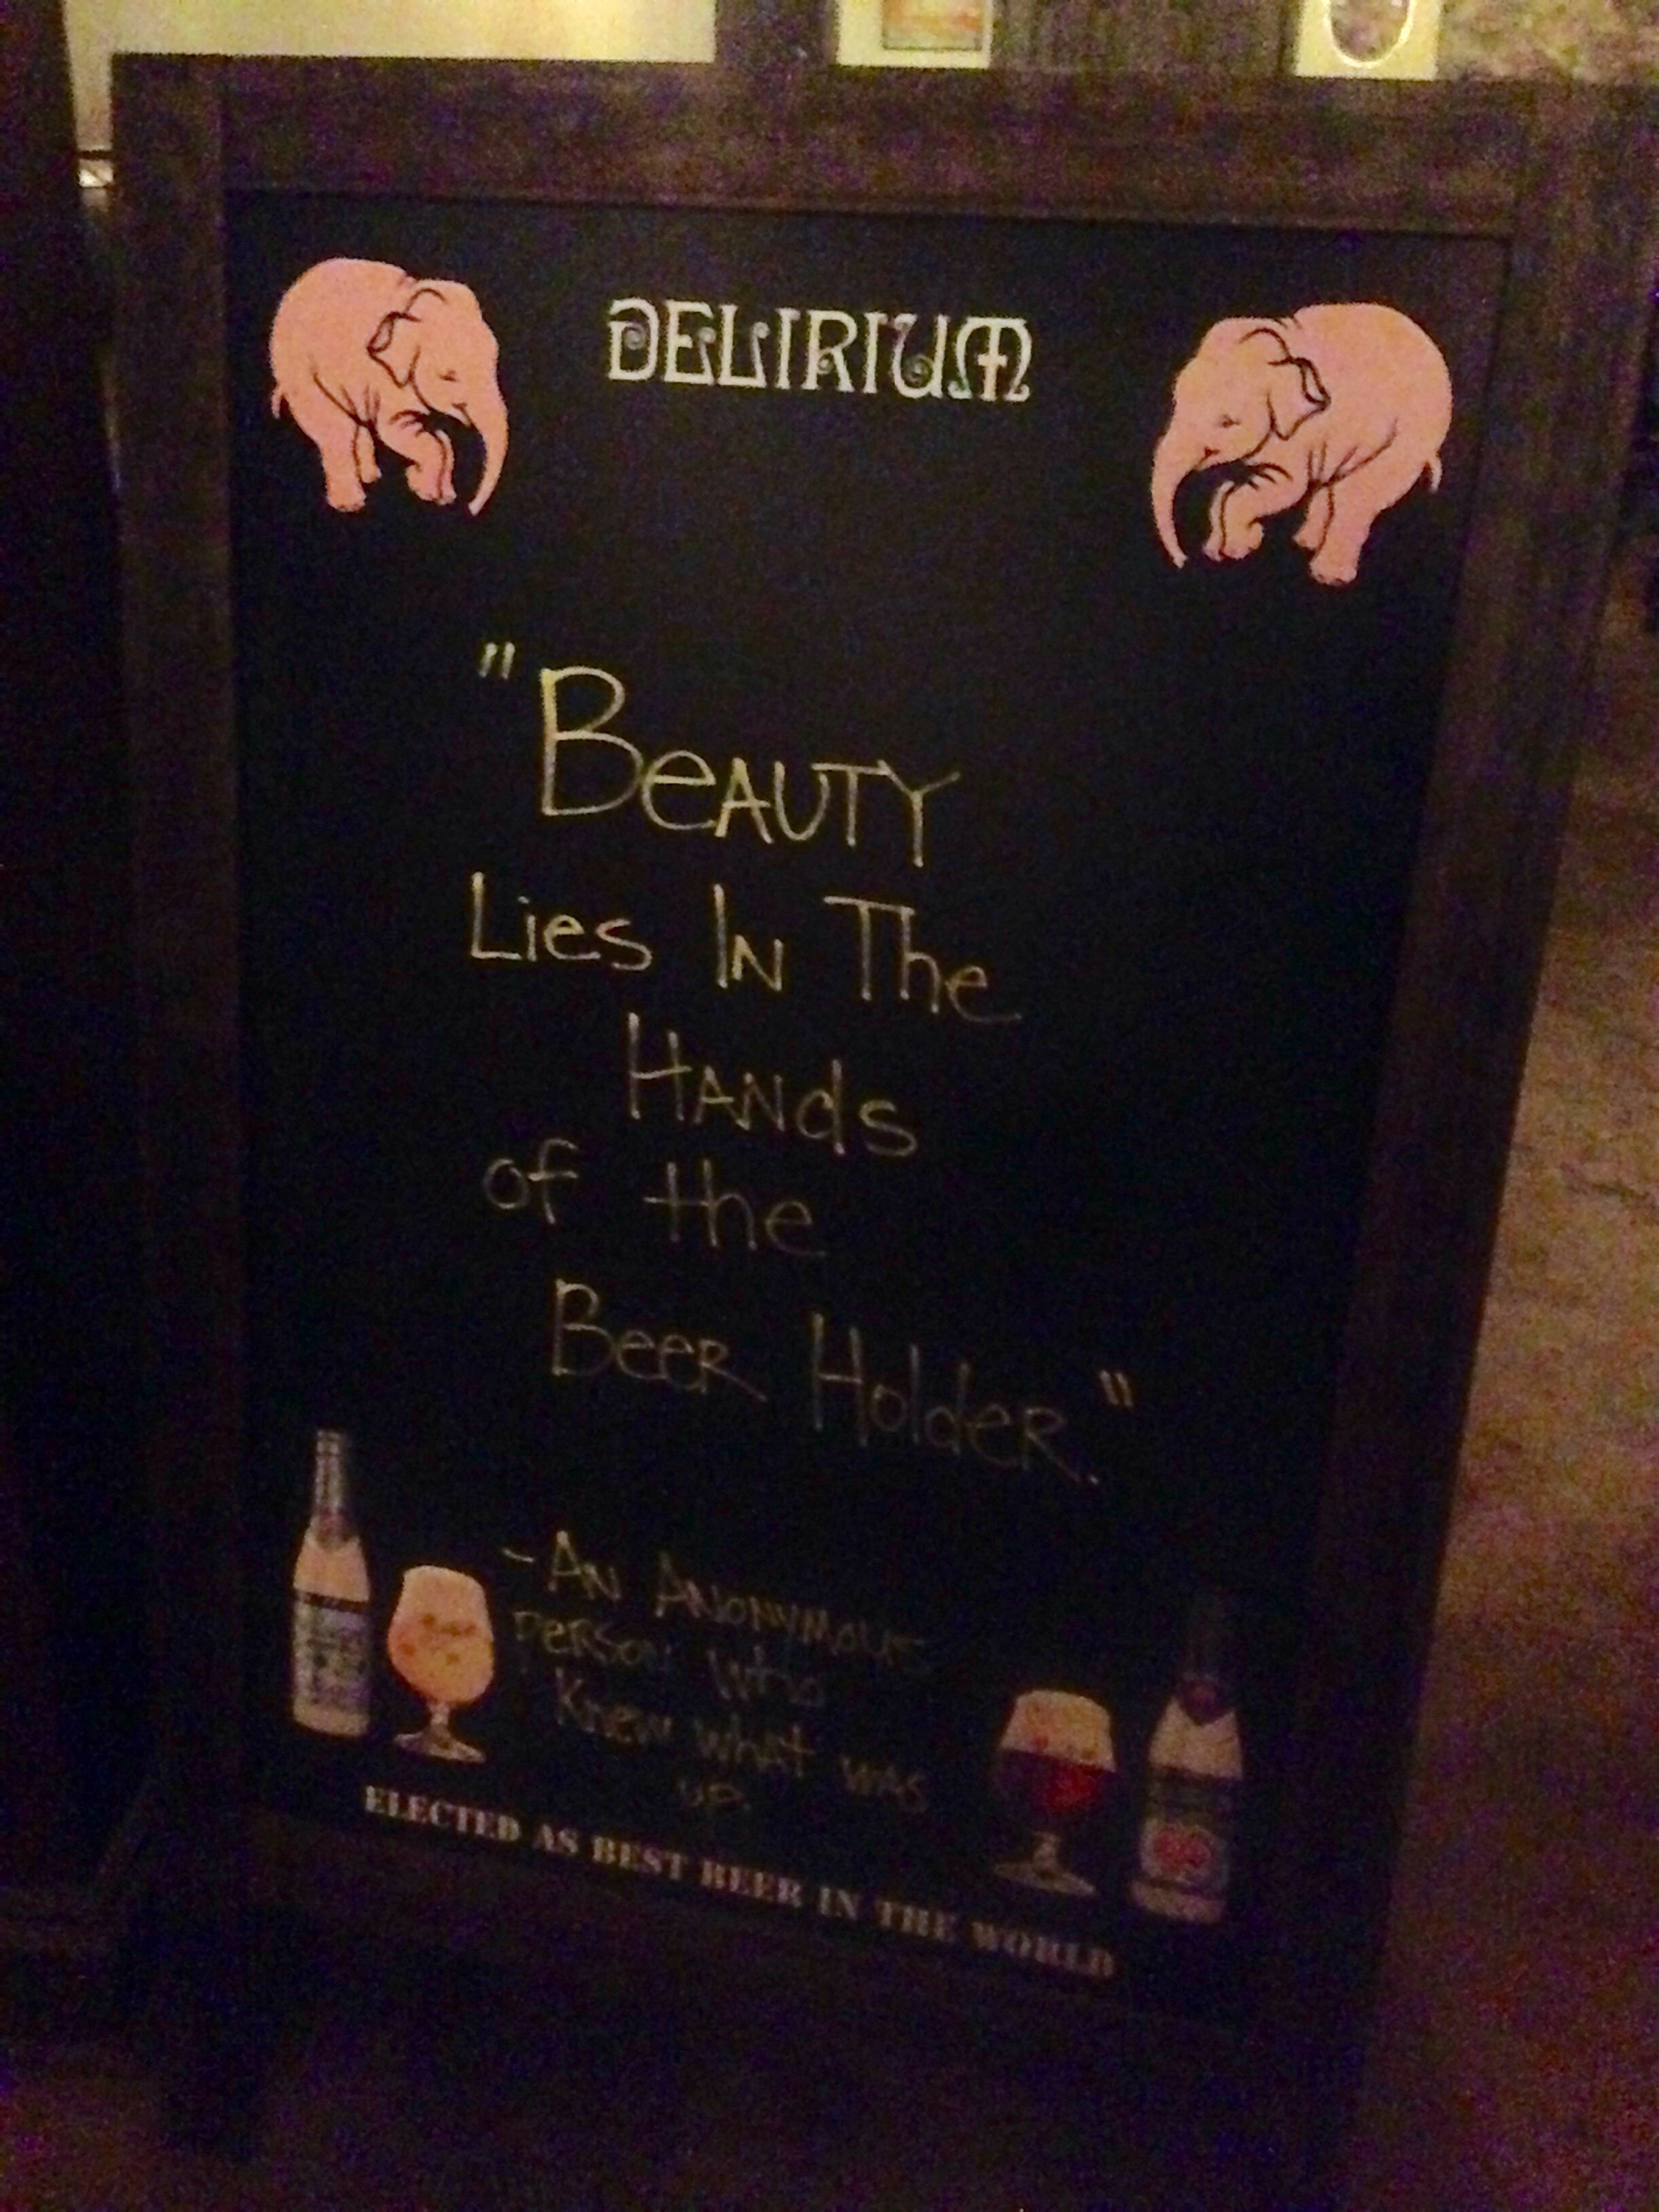 DELIRIUM
"BeAUTY
Lies IN The
HANds
of the
BeeR HoldeR."
- AN ANONYMOUS
PERSON Who
Knew what was
up.
ELECTED AS BEST BEER IN THE WORLD